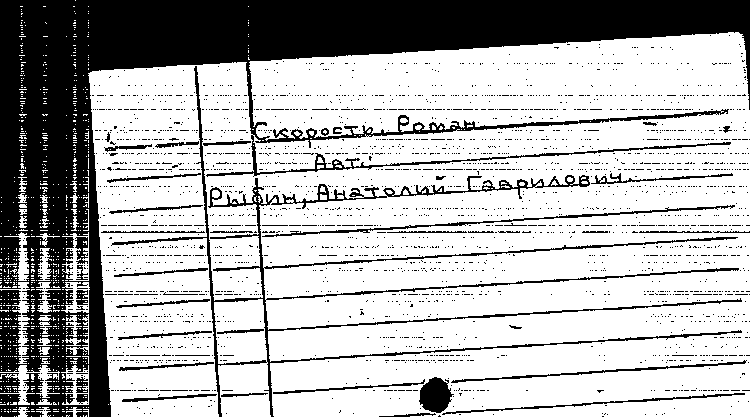 Скорость. Роман.
Авт.:
Рыбин, Анатолий Гаврилович.